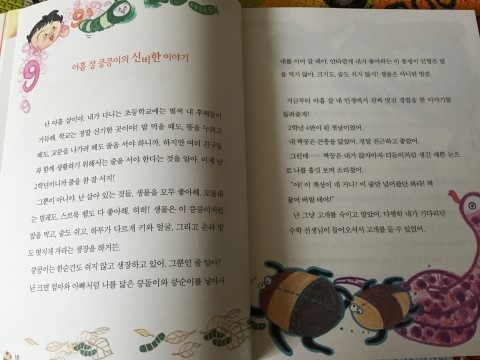 아홉 살 쿵쿵이의 신비한 이야기
난 아홉 살이야. 내가 다니는 초등학교에는 벌써 내 후배들이
가득해. 학교는 정말 신기한 곳이야! 밥 먹을 때도, 똥을 누려고
해도, 교문을 나가려 해도 줄을 서야 하니까. 하지만 여러 친구들
과 함께 생활하기 위해서는 줄을 서야 한다는 것을 알아. 이제 난
2학년이니까 줄을 잘 서지!
그뿐이 아니야. 난 살아 있는 것들, 생물을 모두 좋아해. 꼬물대
는 벌레도, 스르륵 뱀도 다 좋아해. 히히! 생물은 이 쿵쿵이처럼
밥을 먹고 숨도 쉬고, 하루가 다르게 키와 얼굴, 그리고 손과 발
도 멋지게 자라는 생장을 하거든.
쿵쿵이는 한순간도 쉬지 않고 생장하고 있어. 그뿐인 줄 알아!
난 크면 엄마와 아빠처럼 나를 닮은 쿵돌이와 쿵순이를 낳아서
18
대를 이어 갈 테야. 안타깝게 내가 좋아하는 이 뚱뚱이 인형은 밥
을 먹지 않아. 크지도, 숨도 쉬지 않지! 생물은 아니란 말씀.
지금부터 아홉 살 내 인생에서 진짜 멋진 경험을 한 이야기를
들려줄게!
2학년 4반이 된 첫날이었어.
내 짝꿍은 곤충을 닮았어. 정말 친근하고 좋았어.
그런데…… 짝꿍은 내가 앉자마자 더듬이처럼 생긴 예쁜 눈으
로 나를 흘깃 보며 소리쳤어.
"야! 이 책상이 네 거니? 이 줄만 넘어왔단 봐라! 꽉
물어 버릴 테야!"
난 그냥 고개를 숙이고 말았어. 다행히 내가 기다리던
수학 선생님이 들어오셔서 고개를 들 수 있었어.